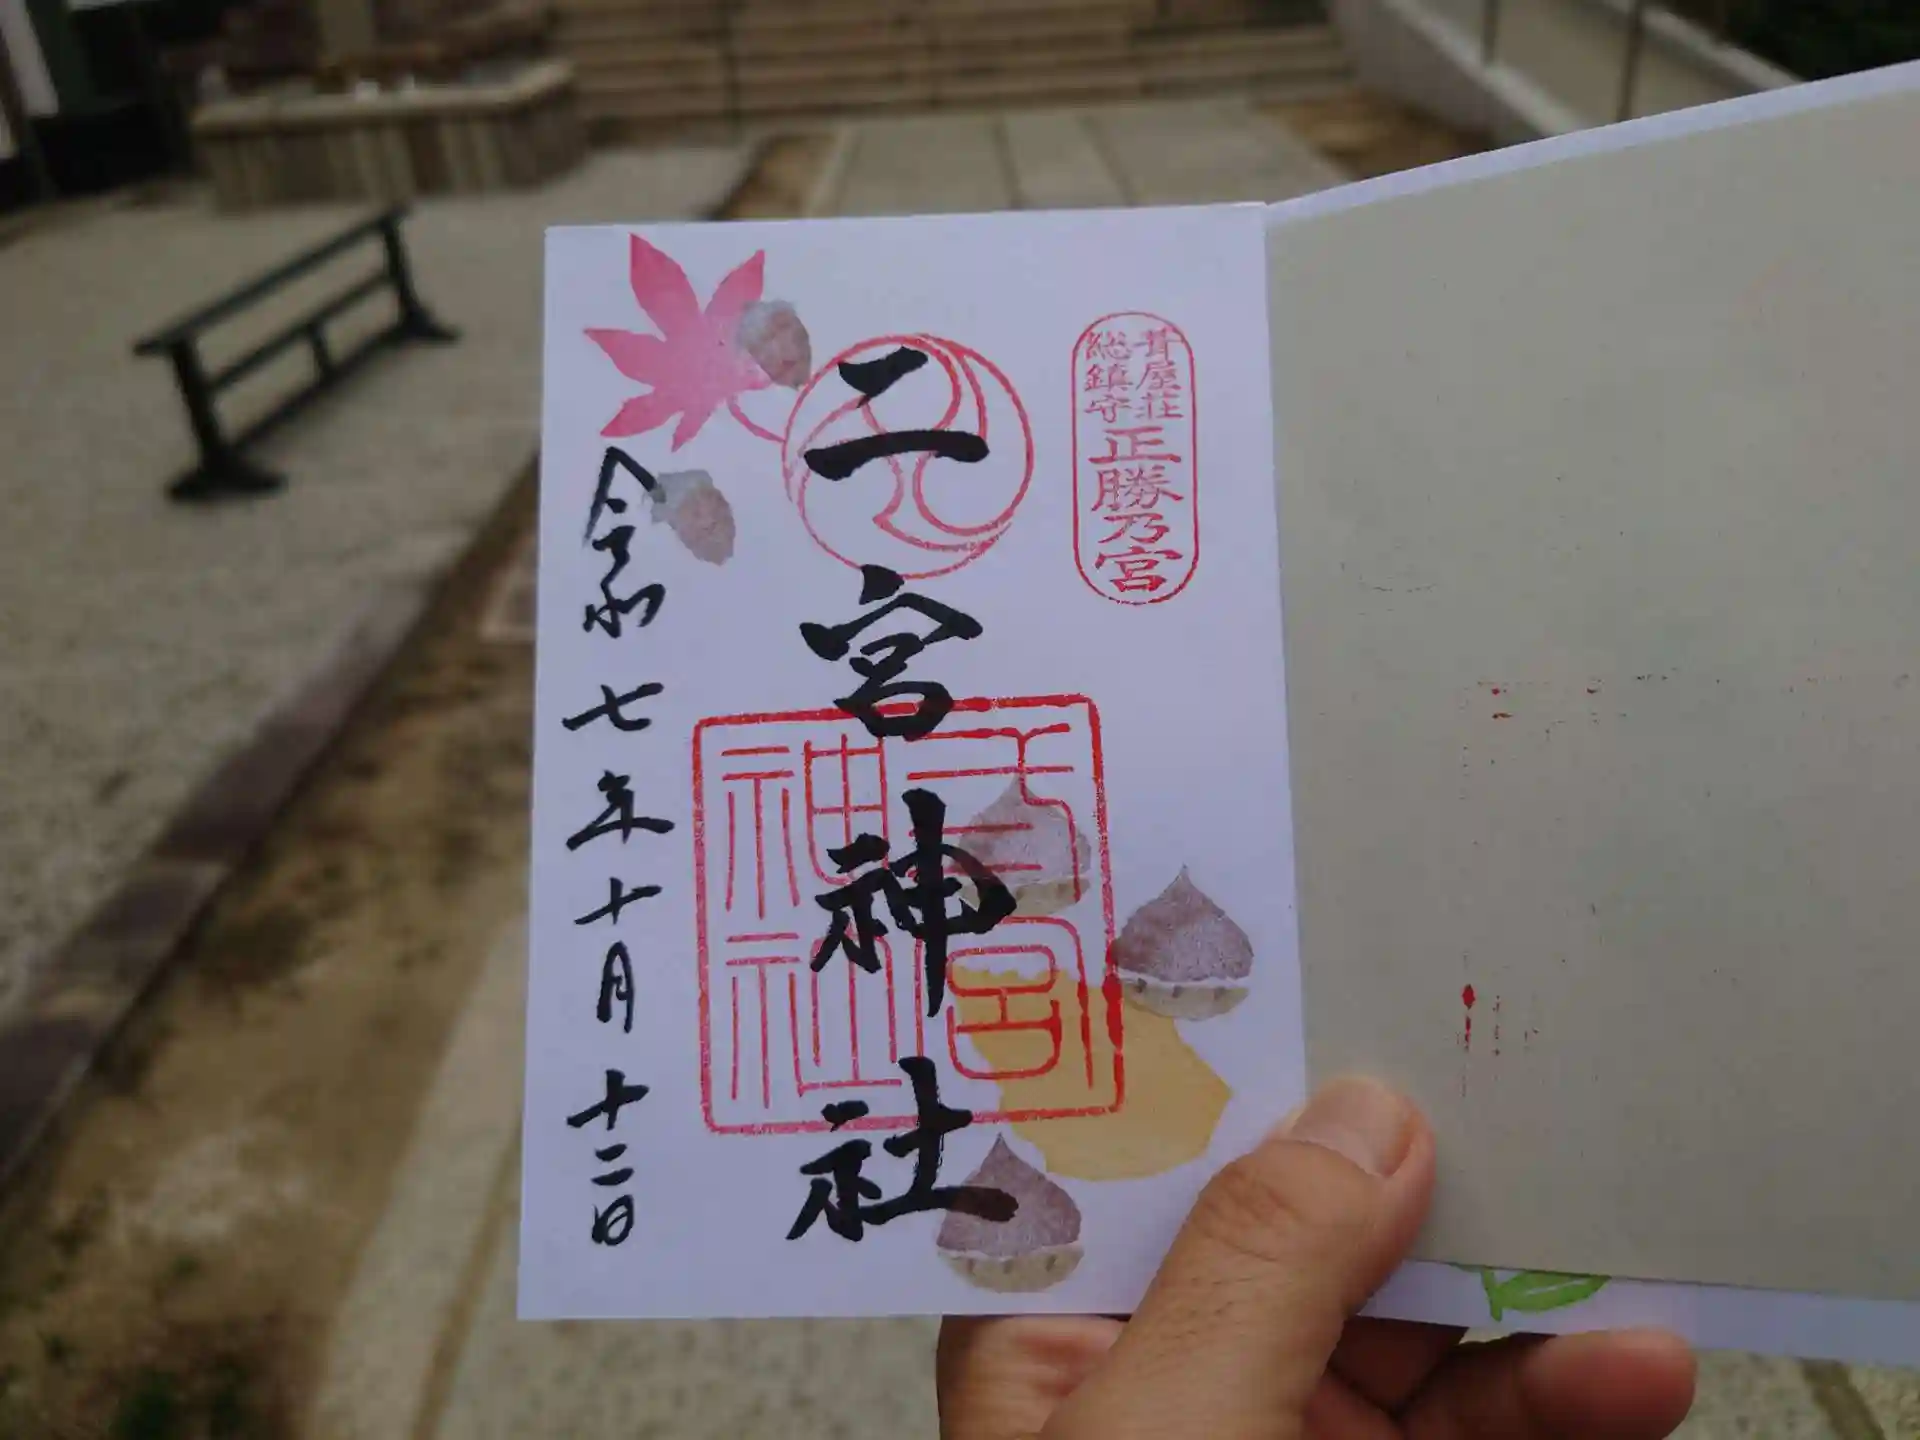 葺屋荘
総鎮守
正勝乃宮
二宮神社
二宮
神社
令和七年十月十二日